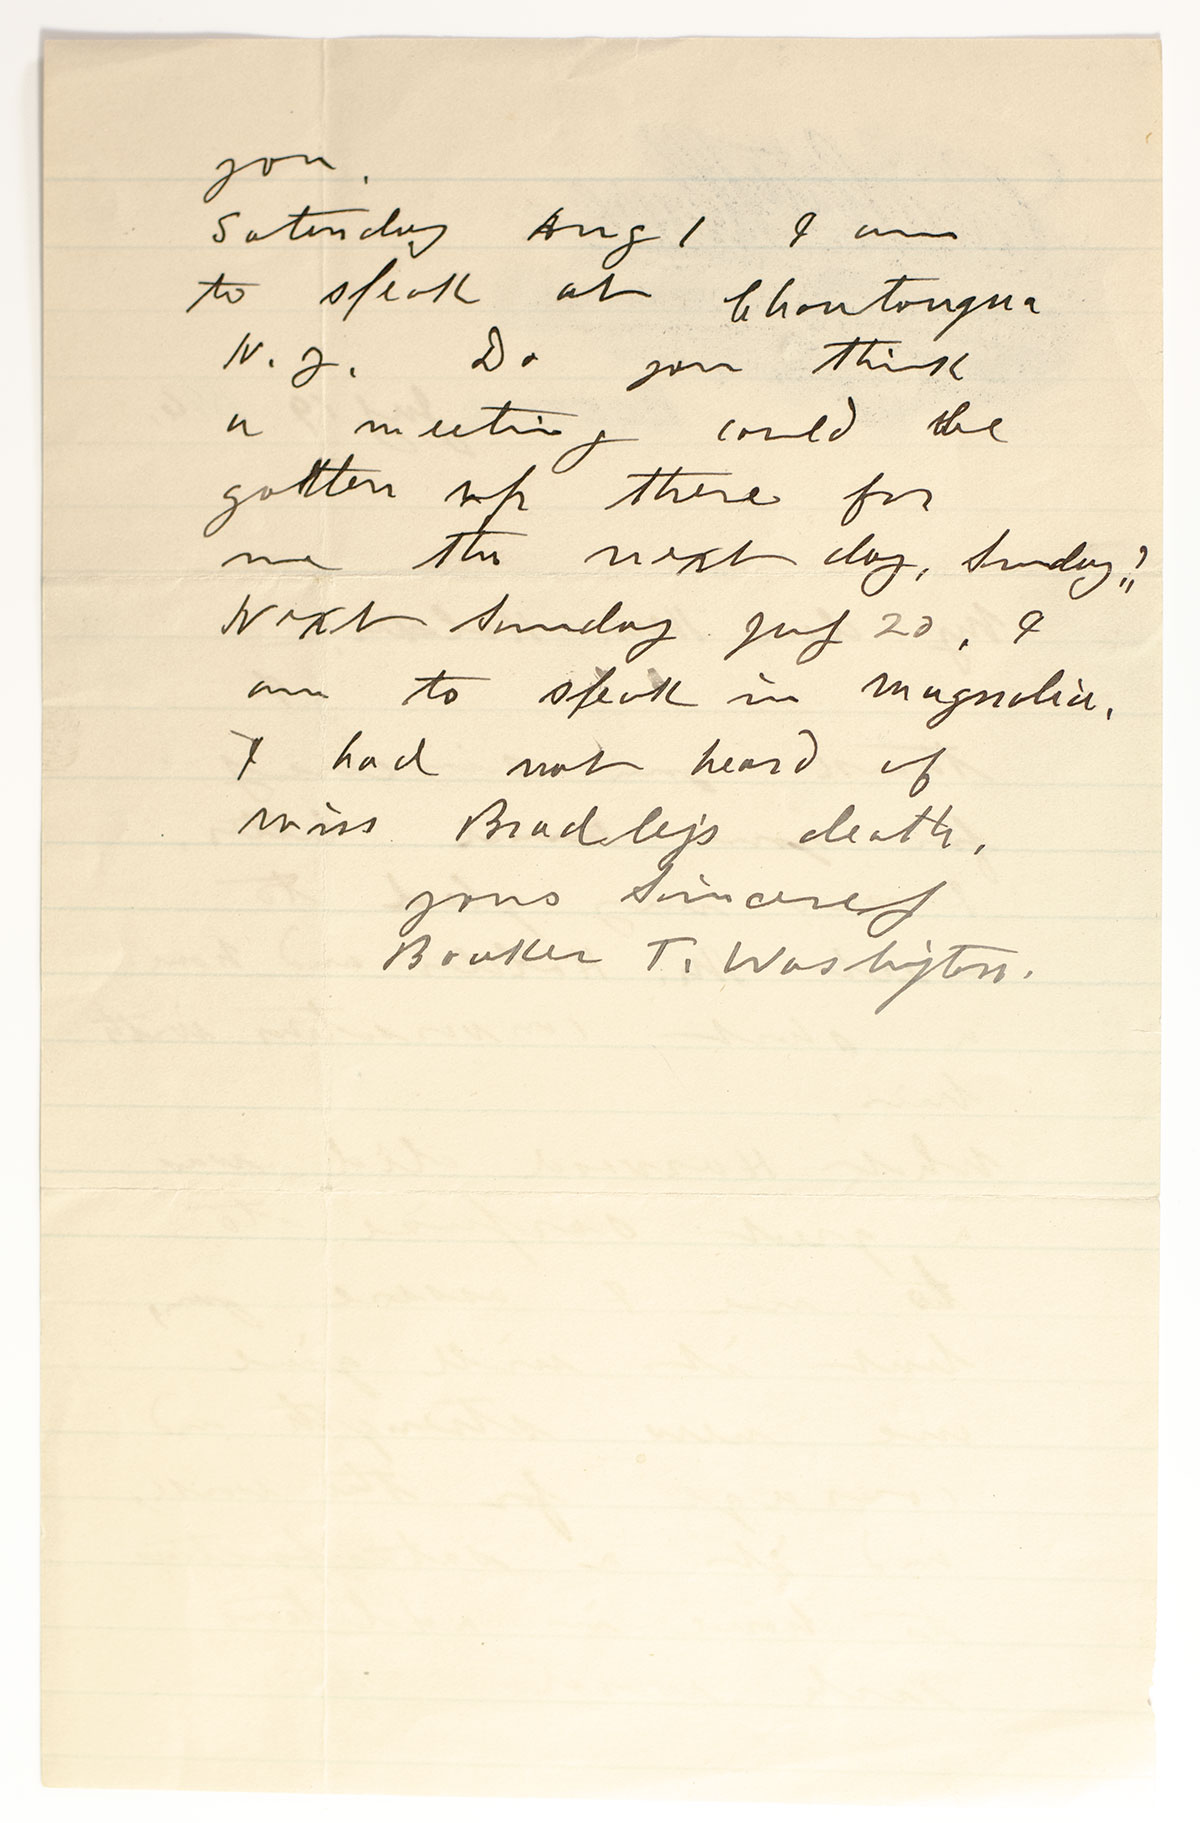 you.
Saturday Aug 1 I am
to speak at Chautauqua
N.Y. Do you think
a meeting could be
gotten up there for
me the next day, Sunday?
Next Sunday July 20, I
am to speak in Magnolia.
I had not heard of
Miss Bradley's death.
Yours Sincerely
Booker T. Washington.